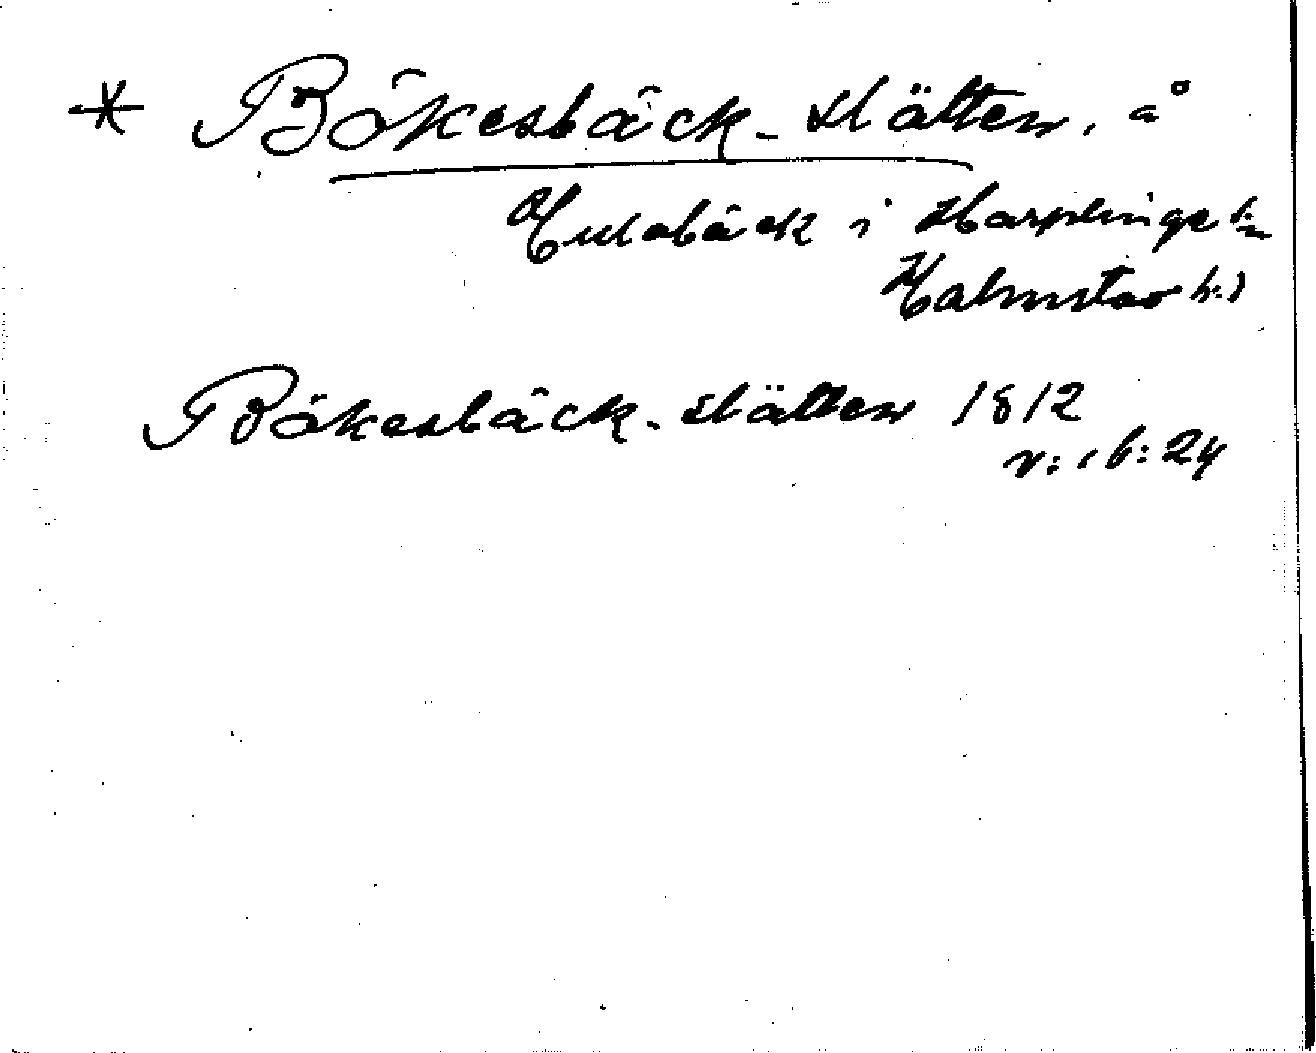 * Bökesbäck-slätten, å
Hulabäck i Harplinge sn
Halmstad h:d
Bökesbäck-slätten 1812
v: , b: 24